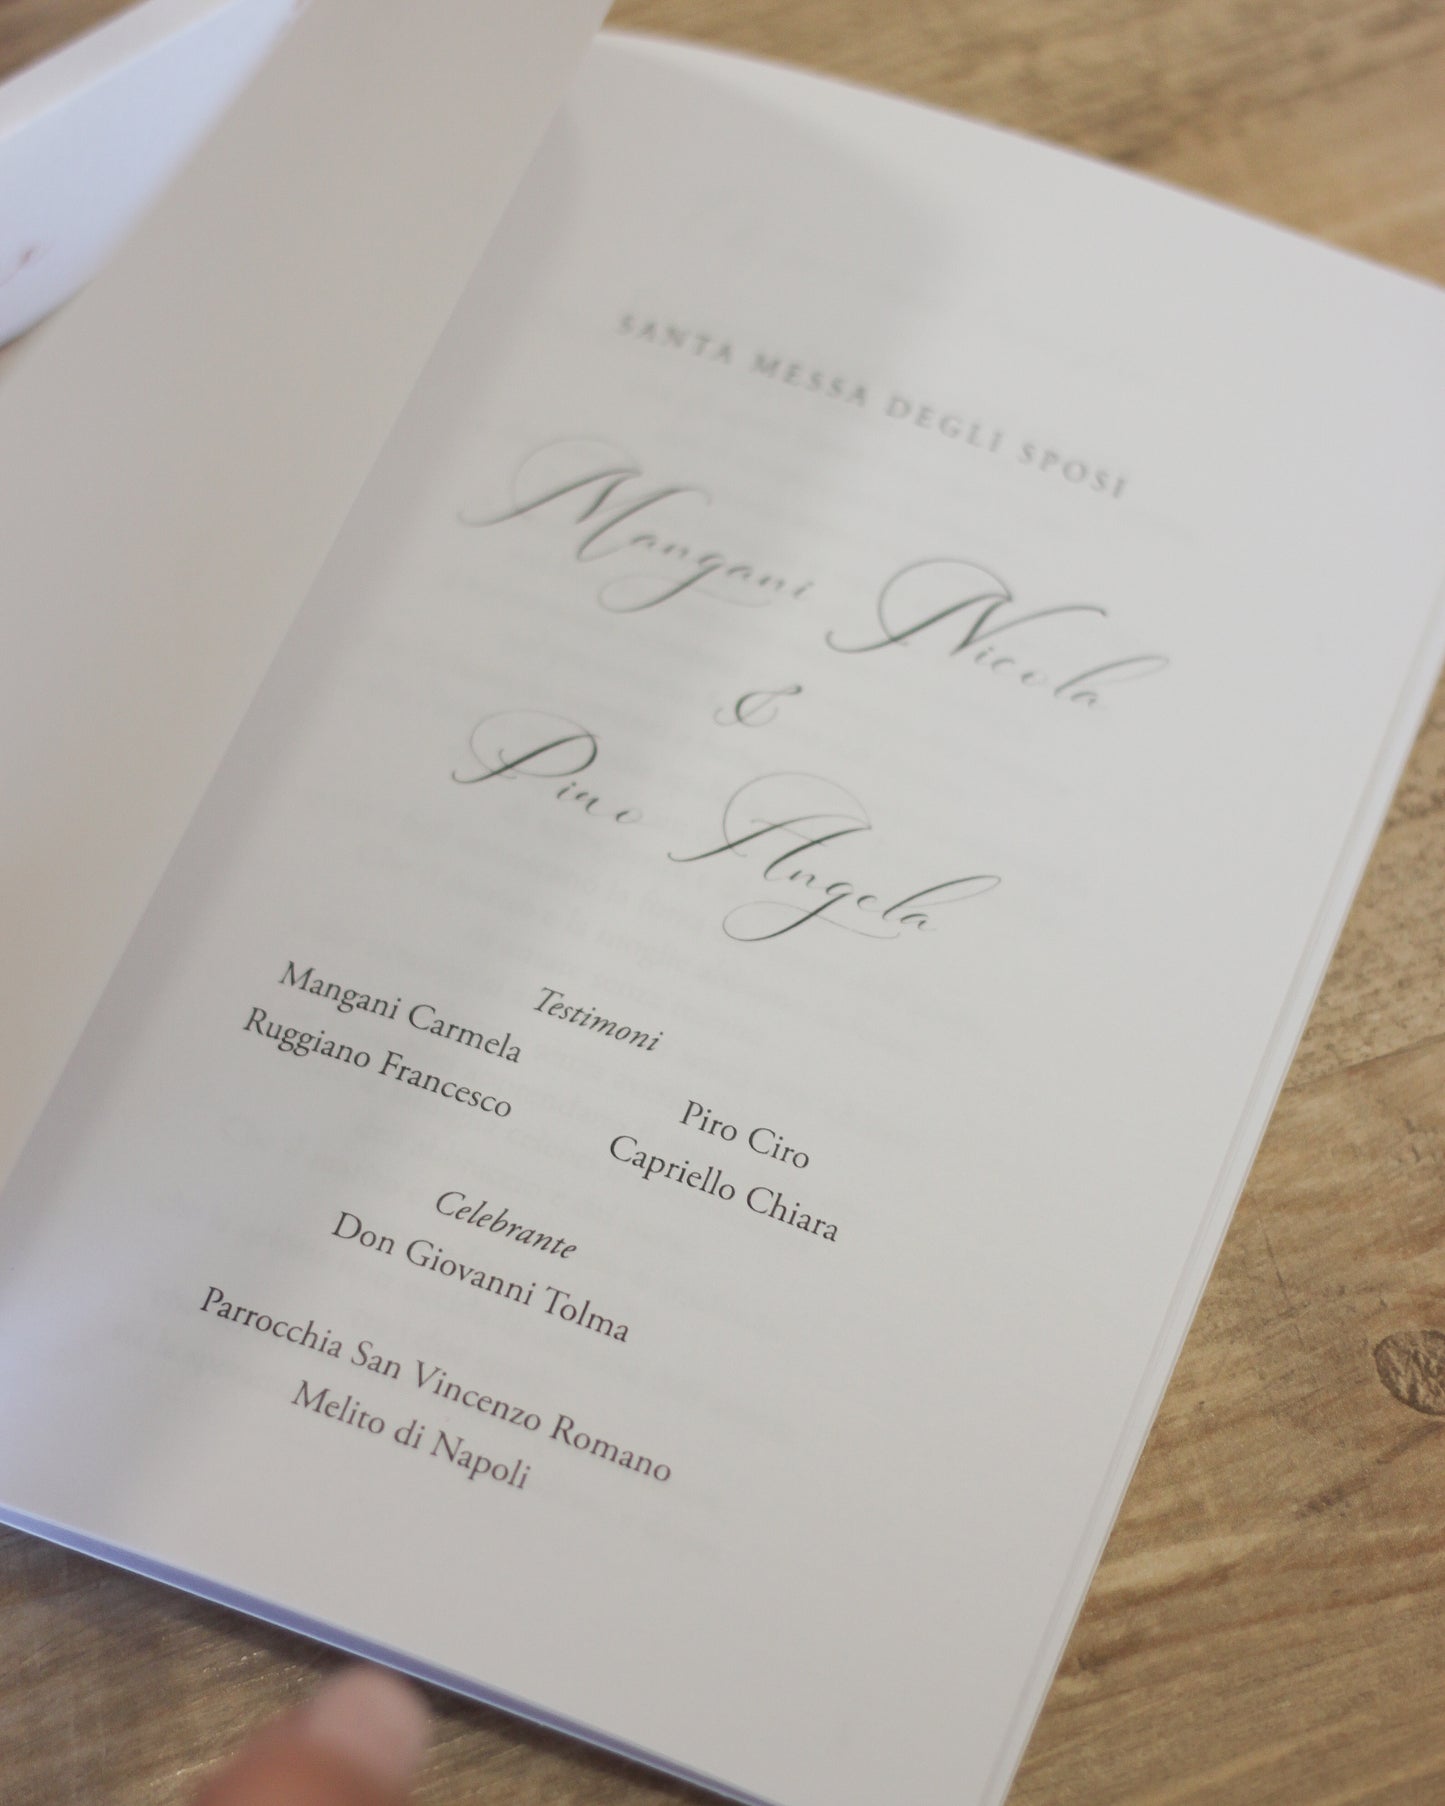 SANTA MESSA DEGLI SPOSI
Mangani Nicola
&
Pino Angela
Testimoni
Mangani Carmela
Ruggiano Francesco
Piro Ciro
Capriello Chiara
Celebrante
Don Giovanni Tolma
Parrocchia San Vincenzo Romano
Melito di Napoli